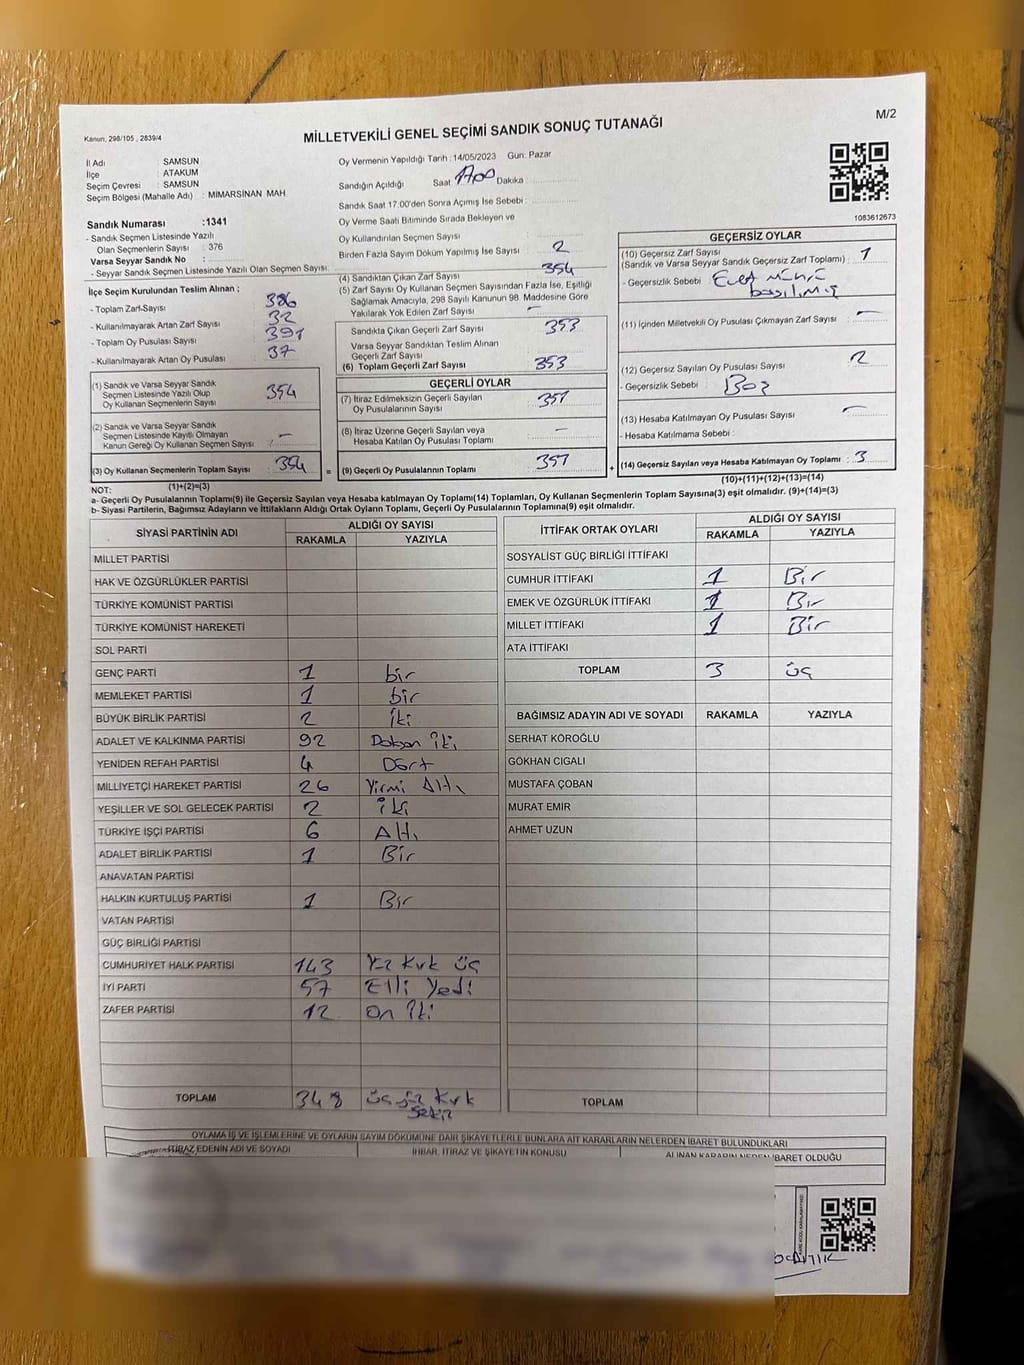 M/2
Kanun: 298/105 , 2839/4
MİLLETVEKİLİ GENEL SEÇİMİ SANDIK SONUÇ TUTANAĞI
İl Adı : SAMSUN
İlçe : ATAKUM
Seçim Çevresi : SAMSUN
Seçim Bölgesi (Mahalle Adı) : MİMARSİNAN MAH
Sandık Numarası :1341
- Sandık Seçmen Listesinde Yazılı
Olan Seçmenlerin Sayısı : 376
Varsa Seyyar Sandık No :
- Seyyar Sandık Seçmen Listesinde Yazılı Olan Seçmen Sayısı:
Oy Vermenin Yapıldığı Tarih : 14/05/2023 Gün: Pazar
Sandığın Açıldığı Saat 17.00 Dakika :
Sandık Saat 17:00'den Sonra Açımış İse Sebebi :
Oy Verme Saati Bitiminde Sırada Bekleyen ve
Oy Kullandırılan Seçmen Sayısı :
Birden Fazla Sayım Döküm Yapılmış İse Sayısı : 2
1083612673
İlçe Seçim Kurulundan Teslim Alınan ;
- Toplam Zarf Sayısı : 386
- Kullanılmayarak Artan Zarf Sayısı : 32
- Toplam Oy Pusulası Sayısı : 391
- Kullanılmayarak Artan Oy Pusulası : 37
(1) Sandık ve Varsa Seyyar Sandık
Seçmen Listesinde Yazılı Olup
Oy Kullanan Seçmenlerin Sayısı : 354
(2) Sandık ve Varsa Seyyar Sandık
Seçmen Listesinde Kayıtlı Olmayan
Kanun Gereği Oy Kullanan Seçmen Sayısı : —
(3) Oy Kullanan Seçmenlerin Toplam Sayısı : 354
(1)+(2)=(3)
(4) Sandıktan Çıkan Zarf Sayısı : 354
(5) Zarf Sayısı Oy Kullanan Seçmen Sayısından Fazla İse, Eşitliği
Sağlamak Amacıyla, 298 Sayılı Kanunun 98. Maddesine Göre
Yakılarak Yok Edilen Zarf Sayısı : —
Sandıkta Çıkan Geçerli Zarf Sayısı : 353
Varsa Seyyar Sandıktan Teslim Alınan
Geçerli Zarf Sayısı :
(6) Toplam Geçerli Zarf Sayısı : 353
GEÇERLİ OYLAR
(7) İtiraz Edilmeksizin Geçerli Sayılan
Oy Pusulasının Sayısı : 351
(8) İtiraz Üzerine Geçerli Sayılan veya
Hesaba Katılan Oy Pusulası Toplamı : —
= (9) Geçerli Oy Pusulalarının Toplamı : 351
GEÇERSİZ OYLAR
(10) Geçersiz Zarf Sayısı
(Sandık ve Varsa Seyyar Sandık Geçersiz Zarf Toplamı) : 1
- Geçersizlik Sebebi : Evet mührü
basılmış
(11) İçinden Milletvekili Oy Pusulası Çıkmayan Zarf Sayısı : —
(12) Geçersiz Sayılan Oy Pusulası Sayısı : 2
- Geçersizlik Sebebi : Boz
(13) Hesaba Katılmayan Oy Pusulası Sayısı : —
- Hesaba Katılmama Sebebi :
+ (14) Geçersiz Sayılan veya Hesaba Katılmayan Oy Toplamı : 3
(10)+(11)+(12)+(13)=(14)
NOT:
a- Geçerli Oy Pusulasının Toplamı(9) ile Geçersiz Sayılan veya Hesaba katılmayan Oy Toplamı(14) Toplamları, Oy Kullanan Seçmenlerin Toplam Sayısına(3) eşit olmalıdır. (9)+(14)=(3)
b- Siyasi Partilerin, Bağımsız Adayların ve İttifakların Aldığı Ortak Oyların Toplamı, Geçerli Oy Pusulalarının Toplamına(9) eşit olmalıdır.
SİYASİ PARTİNİN ADI ALDIĞI OY SAYISI
RAKAMLA YAZIYLA
MİLLET PARTİSİ
HAK VE ÖZGÜRLÜKLER PARTİSİ
TÜRKİYE KOMÜNİST PARTİSİ
TÜRKİYE KOMÜNİST HAREKETİ
SOL PARTİ
GENÇ PARTİ 1 bir
MEMLEKET PARTİSİ 1 bir
BÜYÜK BİRLİK PARTİSİ 2 iki
ADALET VE KALKINMA PARTİSİ 92 Doksan iki
YENİDEN REFAH PARTİSİ 4 Dört
MİLLİYETÇİ HAREKET PARTİSİ 26 Yirmi Altı
YEŞİLLER VE SOL GELECEK PARTİSİ 2 iki
TÜRKİYE İŞÇİ PARTİSİ 6 Altı
ADALET BİRLİK PARTİSİ 1 Bir
ANAVATAN PARTİSİ
HALKIN KURTULUŞ PARTİSİ 1 Bir
VATAN PARTİSİ
GÜÇ BİRLİĞİ PARTİSİ
CUMHURİYET HALK PARTİSİ 143 Yüz Kırk üç
İYİ PARTİ 57 Elli Yedi
ZAFER PARTİSİ 12 On iki
TOPLAM 348 üç yüz Kırk
Sekiz
İTTİFAK ORTAK OYLARI ALDIĞI OY SAYISI
RAKAMLA YAZIYLA
SOSYALİST GÜÇ BİRLİĞİ İTTİFAKI
CUMHUR İTTİFAKI 1 Bir
EMEK VE ÖZGÜRLÜK İTTİFAKI 1 Bir
MİLLET İTTİFAKI 1 Bir
ATA İTTİFAKI
TOPLAM 3 üç
BAĞIMSIZ ADAYIN ADI VE SOYADI RAKAMLA YAZIYLA
SERHAT KÖROĞLU
GÖKHAN CIGALI
MUSTAFA ÇOBAN
MURAT EMİR
AHMET UZUN
TOPLAM
OYLAMA İŞ VE İŞLEMLERİNE VE OYLARIN SAYIM DÖKÜMÜNE DAİR ŞİKAYETLERLE BUNLARA AİT KARARLARIN NELERDEN İBARET BULUNDUKLARI
İTİRAZ EDENİN ADI VE SOYADI İHBAR, İTİRAZ VE ŞİKAYETİN KONUSU ALINAN KARARIN NEDEN İBARET OLDUĞU